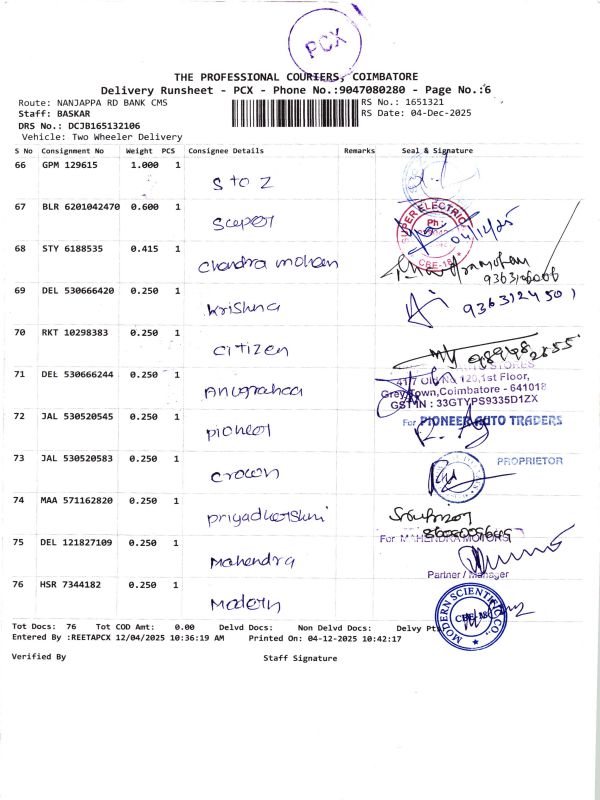 PCX
THE PROFESSIONAL COURIERS, COIMBATORE
Delivery Runsheet - PCX - Phone No.:9047080280 - Page No.:6
Route: NANJAPPA RD BANK CMS
RS No.: 1651321
Staff: BASKAR
RS Date: 04-Dec-2025
DRS No.: DCJB165132106
Vehicle: Two Wheeler Delivery
S No Consignment No Weight PCS Consignee Details Remarks Seal & Signature
66 GPM 129615 1.000 1 S to Z
67 BLR 6201042470 0.600 1 Super
SUPER ELECTRIC
CBE-18
04/12/25
68 STY 6188535 0.415 1 Chandra mohan
69 DEL 530666420 0.250 1 Krishna
9363124501
70 RKT 10298383 0.250 1 Citizen
71 DEL 530666244 0.250 1 Anugrahaa
STORES
1st Floor,
Grey Town, Coimbatore - 641018
GSTIN : 33GTYPS9335D1ZX
72 JAL 530520545 0.250 1 pioneer
For PIONEER AUTO TRADERS
73 JAL 530520583 0.250 1 crown
PROPRIETOR
74 MAA 571162820 0.250 1 priyadharshni
75 DEL 121827109 0.250 1 Mahendra
For MAHENDRA MOTORS
Partner / Manager
76 HSR 7344182 0.250 1 Modern
MODERN SCIENTIFIC CO.,
CBE-18
Tot Docs: 76 Tot COD Amt: 0.00 Delvd Docs: Non Delvd Docs: Delvy
Entered By :REETAPCX 12/04/2025 10:36:19 AM Printed On: 04-12-2025 10:42:17
Verified By Staff Signature